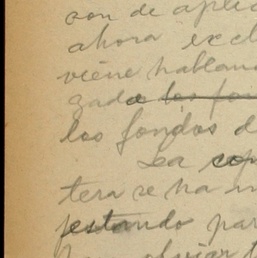 con de aplic
ahora excl
viene hablan
gada los fon
los fondos d
La cop
tera se ha m
jestando par
obviar